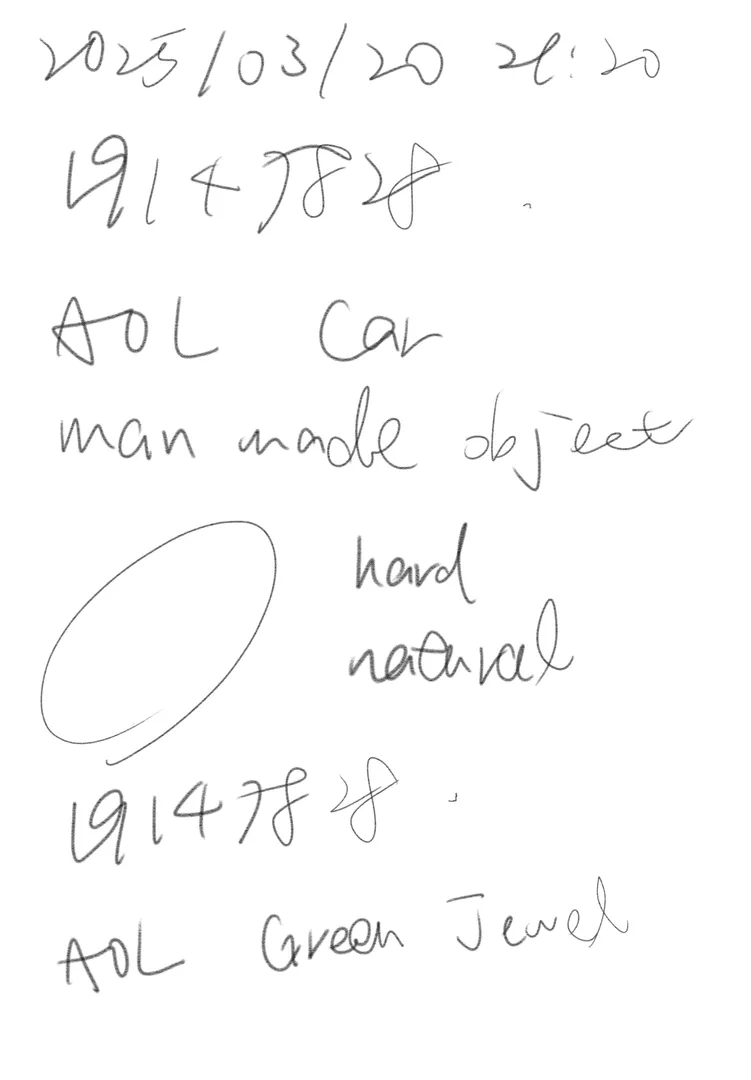 2025/03/20 21:20
19147828
AOL Car
man made object
hard
natural
19147828
AOL Green Jewel